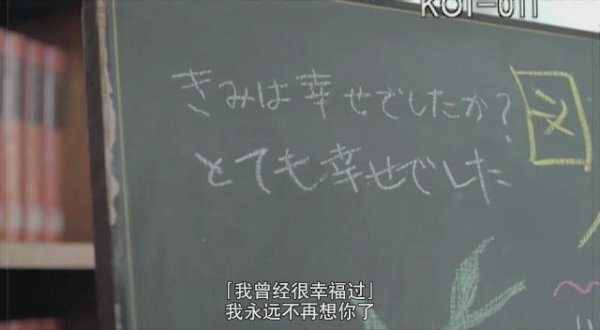 KOI-011
きみは幸せでしたか?
とても幸せでした
「我曾经很幸福过」
我永远不再想你了